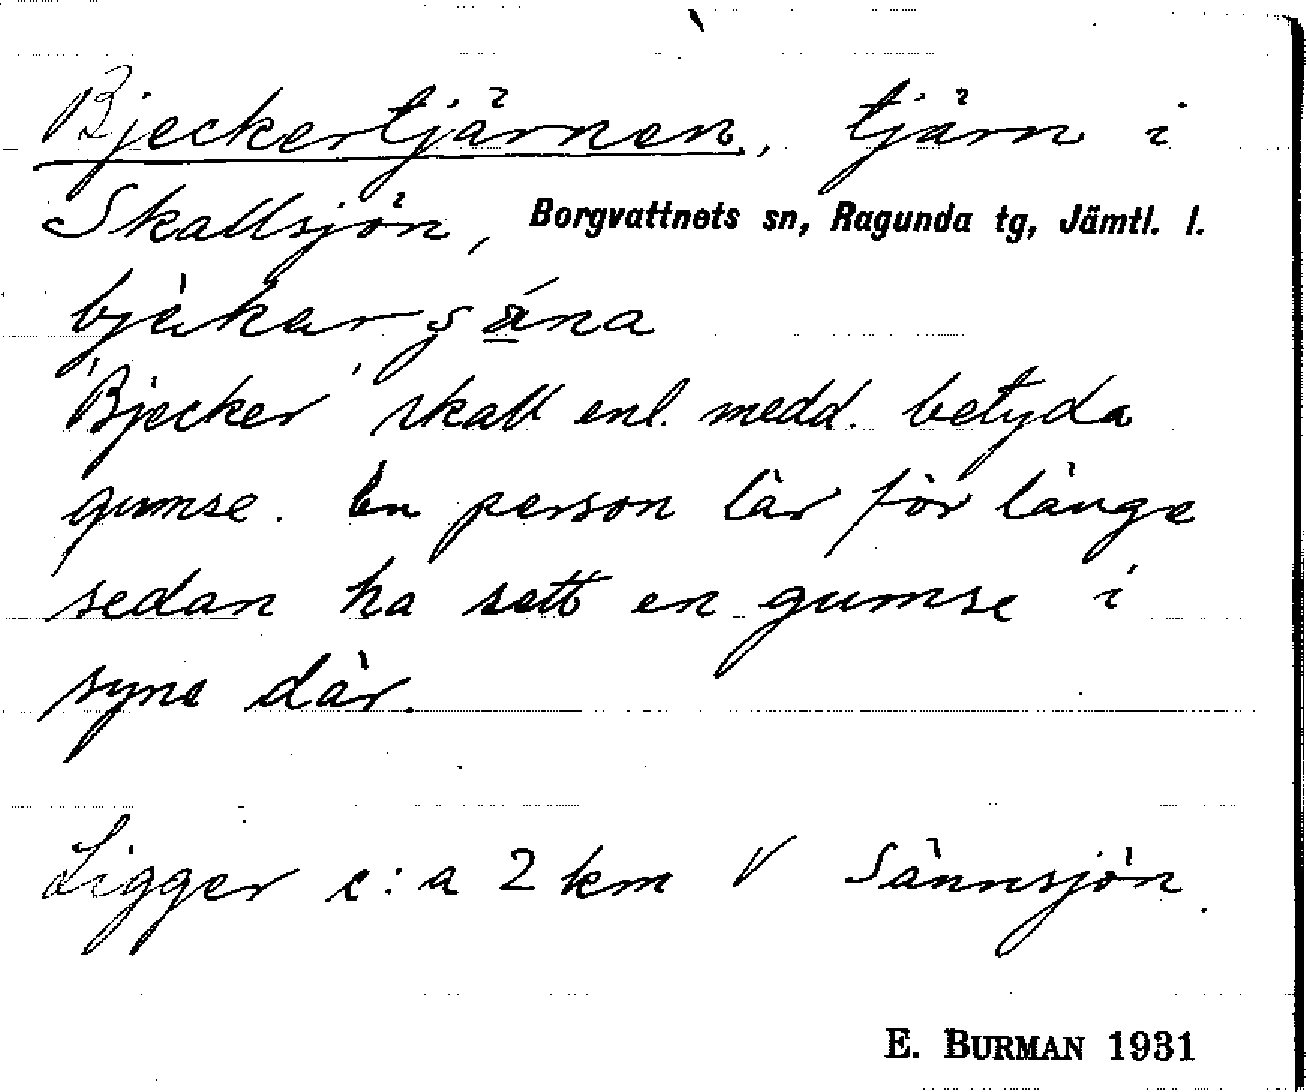 Bjeckertjärnen, tjärn i
Skallsjön, Borgvattnets sn, Ragunda tg, Jämtl. l.
"Bjecker" skall enl. medd. betyda
gumse. En person lär för länge
sedan ha sett en gumse i
syne där.
Ligger c:a 2 km V Sännsjön.
E. BURMAN 1931